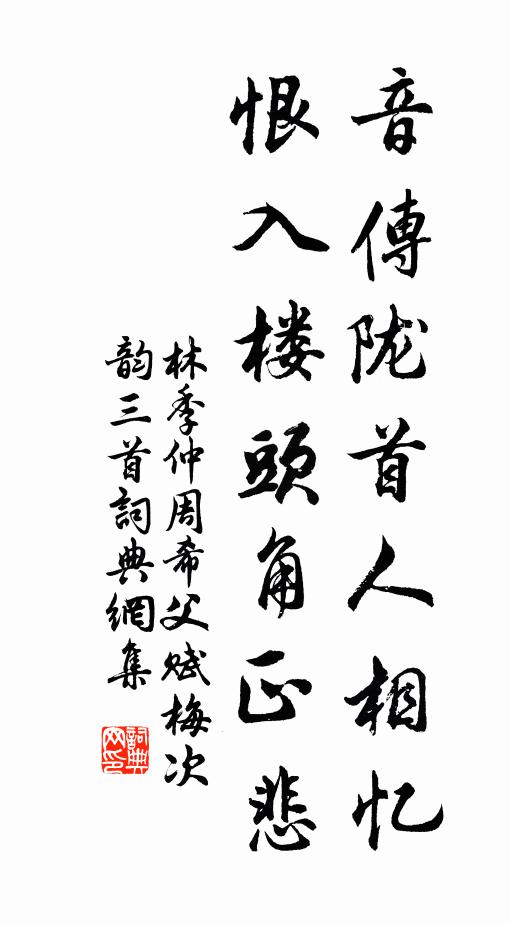 音傳陇首人相忆
恨入楼頭角正悲
林季仲周希父赋梅次
韵三首詞典網集
詞典网印